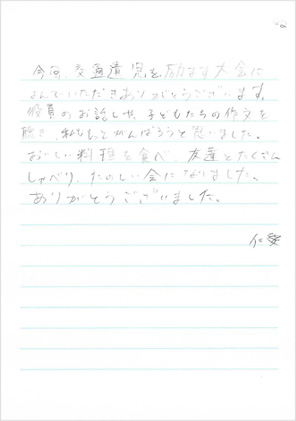 今回、交通遺児を励ます大会に
よんでいただきありがとうございます。
役員のお話しや、子どもたちの作文を
聴き、私ももっとがんばろうと思いました。
おいしい料理を食べ、友達とたくさん
しゃべり、たのしい会になりました。
ありがとうございました。